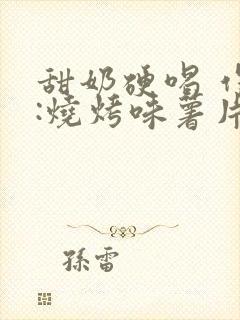 甜奶硬唱
:燒烤味薯片
孫雷